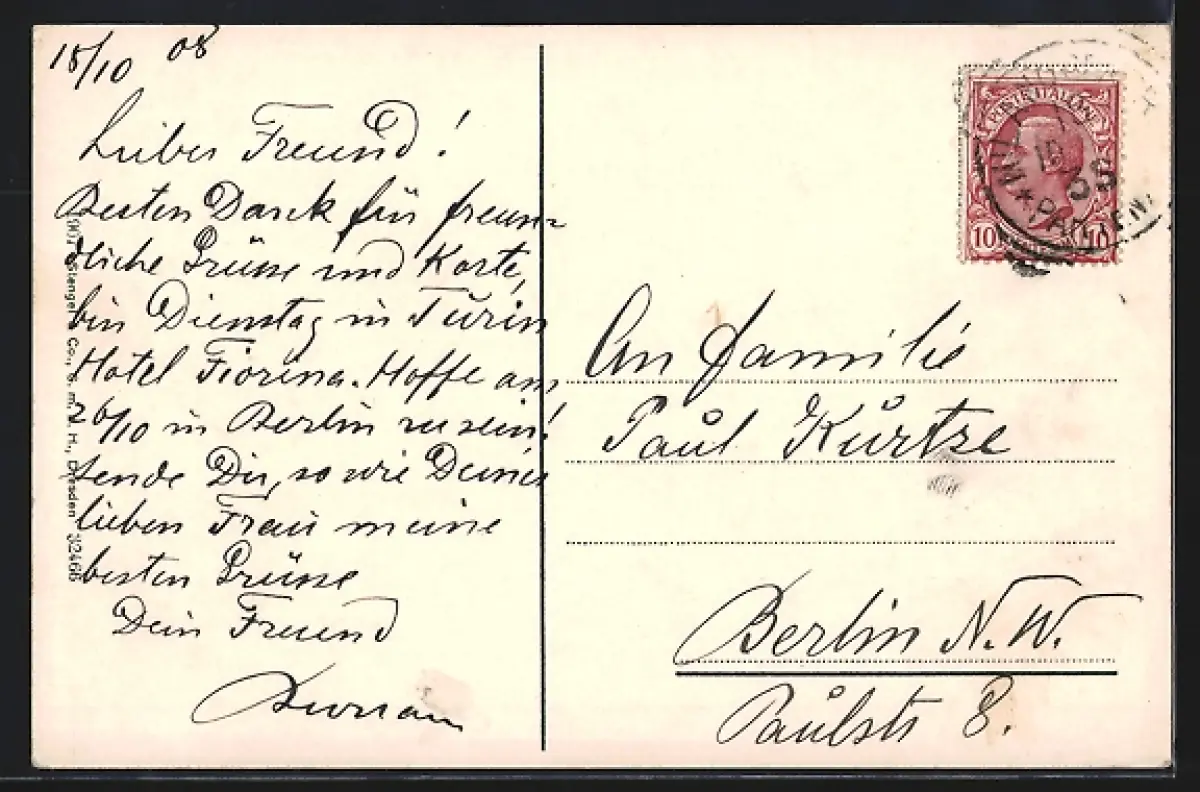 18/10 08
Lieber Freund!
Besten Danck für freun-
dliche Grüsse und Karte,
bin Dienstag in Turin
Hotel Fiorina. Hoffe am
26/10 in Berlin zu sein!
sende Dir, so wie Deiner
lieben Frau meine
besten Grüsse
Dein Freund
POSTE ITALIANE
10 10
MILANO
18
08
An Familie
Paul Kurtze
Berlin N.W.
Paulstr 8.
Stengel & Co., G. m. b. H., Dresden 32466